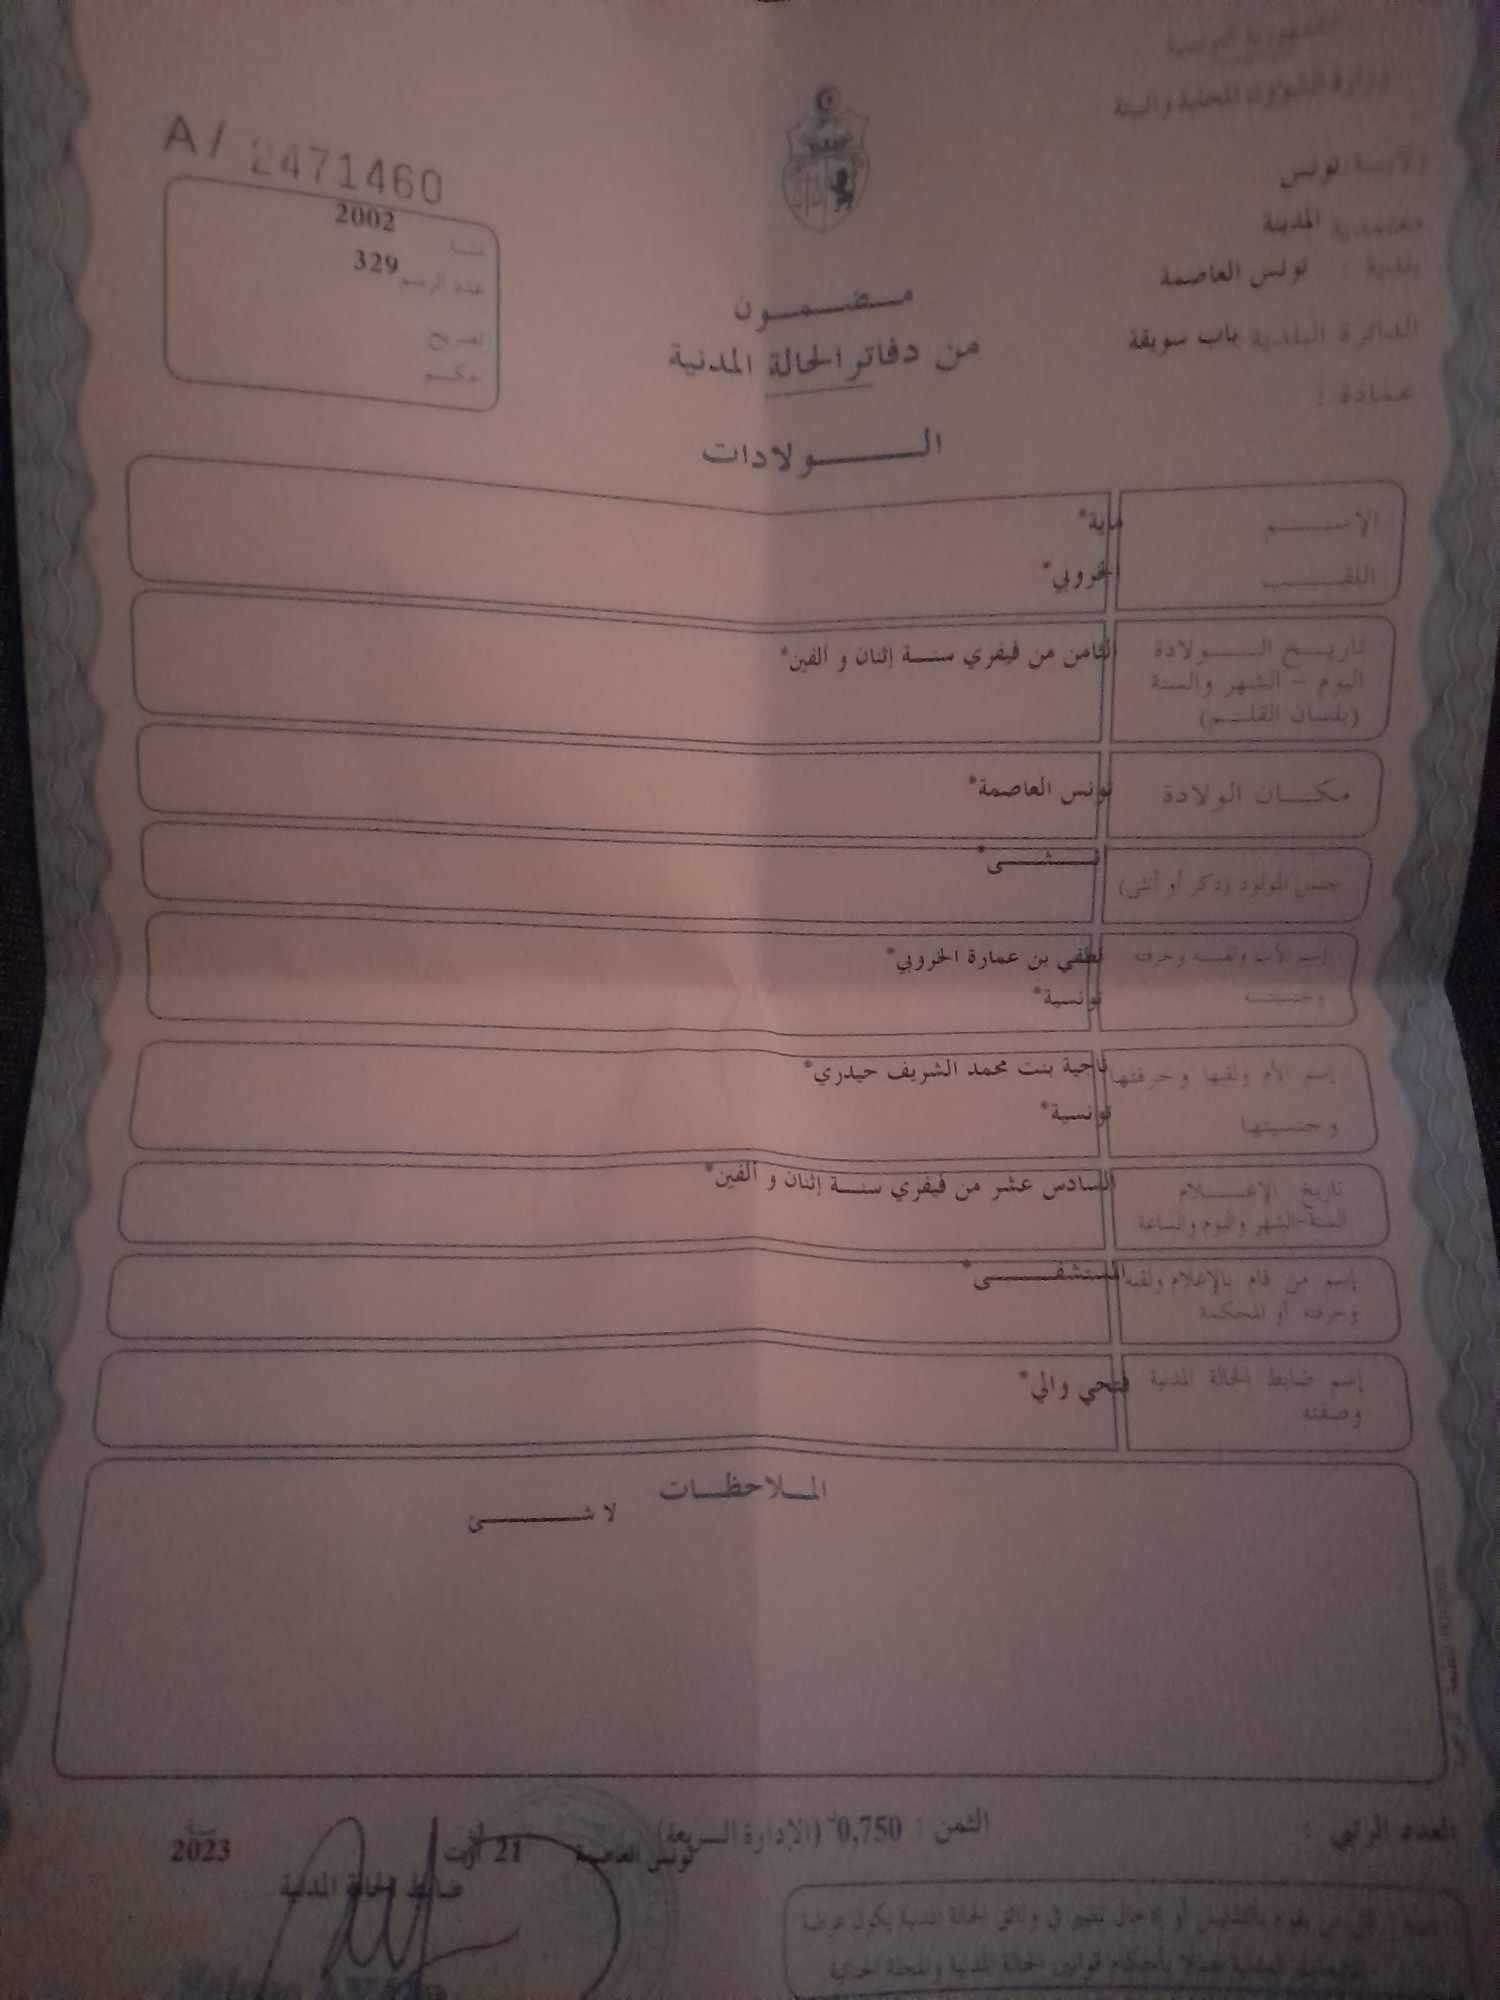 الجمهورية التونسية
وزارة الشؤون المحلية والبيئة
ولايــة تونس
معتمدية المدينة
بلدية : تونس العاصمة
الدائرة البلدية باب سويقة
عمادة :
A / 2471460
سنــة 2002
عدد الرسم 329
تصريح
حكــم
مـضـمـون
من دفاتر الحالة المدنية
الـــولادات
الإســـم
ماية*
اللقـــب
الخروبي*
تاريـخ الـــولادة
اليوم - الشهر والسنة
(بلسان القلــم)
الثامن من فيفري سنــة إثنان و ألفين*
مكــان الولادة
تونس العاصمة*
جنس المولود (ذكر أو أنثى)
أنــثــى*
إسم الأب ولقبــه وحرفته
وجنسيتــه
لطفي بن عمارة الخروبي*
تونسية*
إسم الأم ولقبها وحرفتها
وجنسيتها
ناجية بنت محمد الشريف حيدري*
تونسية*
تاريخ الإعــلام
السنة-الشهر واليوم والساعة
السادس عشر من فيفري سنــة إثنان و ألفين*
إسم من قام بالإعلام ولقبه
وحرفته أو المحكمة
المستشفــى*
إسم ضابط الحالة المدنية
وصفته
فتحي والي*
المـلاحظـات
لا شــــئ
العدد الرتبي :
الثمن : 0,750 (الإدارة السريعة)
تونس العاصمة 21 أوت 2023
ضابط الحالة المدنية
من يقوم بالتنقيص أو إدخال تغيير في وثائق الحالة المدنية يكون عرضة
عملا بأحكام قوانين الحالة المدنية والمجلة الجنائية